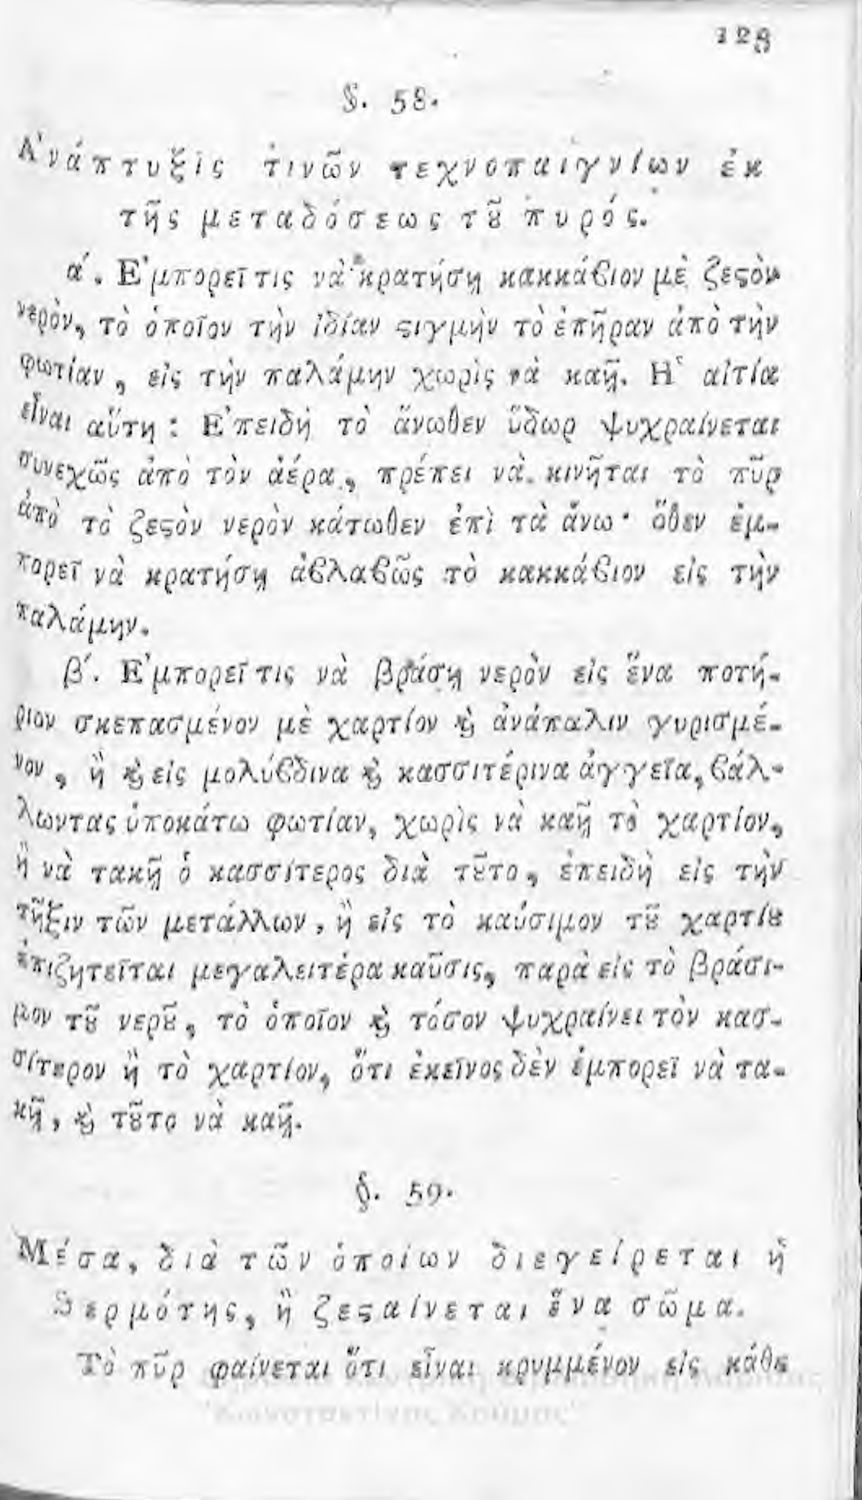 129
§. 58.
Α᾿νάπτυξις τινῶν τεχνοπαιγνίων ἐκ
τῆς μεταδόσεως τȣ͂ πυρός.
α΄. Ε᾿μπορεῖ τις νὰ κρατήσῃ κακκάβιον μὲ ζεϛὸν
νερὸν, τὸ ὁποῖον τὴν ἰδίαν ϛιγμὴν τὸ ἐπῆραν ἀπὸ τὴν
φωτίαν, εἰς τὴν παλάμην χωρὶς νὰ καῇ. Η῾ αἰτία
εἶναι αὕτη: Ε᾿πειδὴ τὸ ἄνωθεν ὕδωρ ψυχραίνεται
συνεχῶς ἀπὸ τὸν ἀέρα, πρέπει νὰ κινῆται τὸ πῦρ
ἀπὸ τὸ ζεϛὸν νερὸν κάτωθεν ἐπὶ τὰ ἄνω· ὅθεν ἐμ-
πορεῖ νὰ κρατήσῃ ἀβλαβῶς τὸ κακκάβιον εἰς τὴν
παλάμην.
β΄. Ε᾿μπορεῖ τις νὰ βράσῃ νερὸν εἰς ἕνα ποτή-
ριον σκεπασμένον μὲ χαρτίον ϗ̀ ἀνάπαλιν γυρισμέ-
νον, ἢ ϗ̀ εἰς μολύβδινα ϗ̀ κασσιτέρινα ἀγγεῖα, βάλ-
λωντας ὑποκάτω φωτίαν, χωρὶς νὰ καῇ τὸ χαρτίον,
ἢ νὰ τακῇ ὁ κασσίτερος διὰ τȣ͂το, ἐπειδὴ εἰς τὴν
τῆξιν τῶν μετάλλων, ἢ εἰς τὸ καύσιμον τȣ͂ χαρτίȣ
ἐπιζητεῖται μεγαλειτέρα καῦσις, παρὰ εἰς τὸ βράσι-
μον τȣ͂ νερȣ͂, τὸ ὁποῖον ϗ̀ τόσον ψυχραίνει τὸν κασ-
σίτερον ἢ τὸ χαρτίον, ὅτι ἐκεῖνος δὲν ἐμπορεῖ νὰ τα-
κῇ, ϗ̀ τȣ͂το νὰ καῇ.
§. 59.
Μέσα, διὰ τῶν ὁποίων διεγείρεται ἡ
θερμότης, ἢ ζεϛαίνεται ἕνα σῶμα.
Τὸ πῦρ φαίνεται ὅτι εἶναι κρυμμένον εἰς κάθε
Κεντρική Βιβλιοθήκη
"Κωνσταντίνος Κούμας"